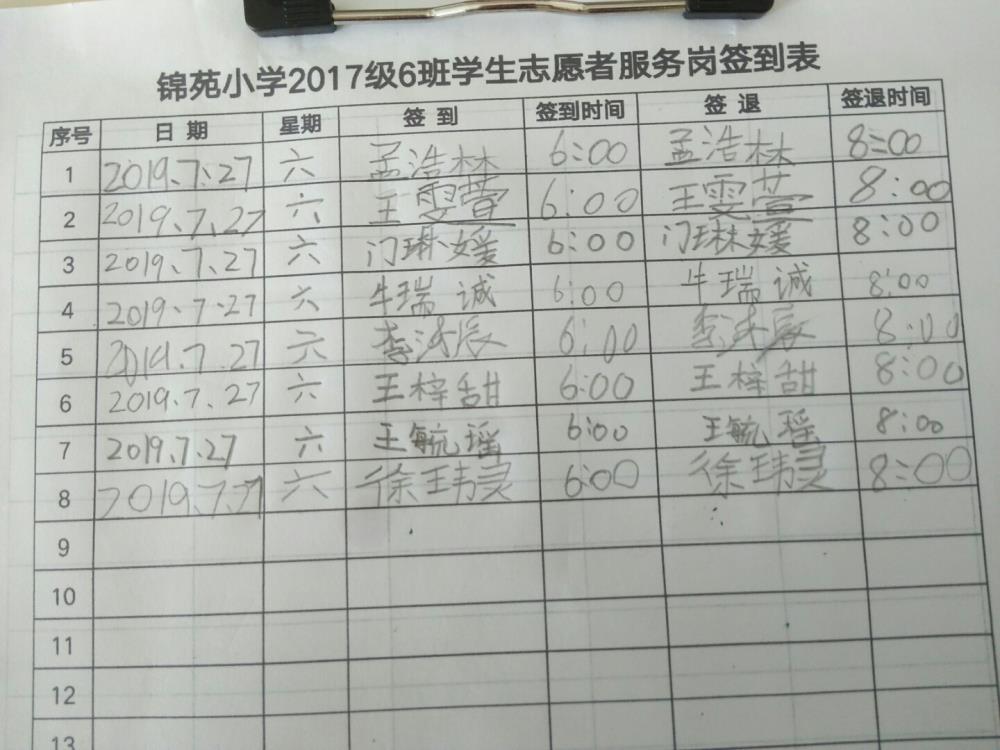 锦苑小学2017级6班学生志愿者服务岗签到表
序号 日期 星期 签到 签到时间 签退 签退时间
1 2019.7.27 六 孟浩林 6:00 孟浩林 8:00
2 2019.7.27 六 王雯萱 6:00 王雯萱 8:00
3 2019.7.27 六 门琳媛 6:00 门琳媛 8:00
4 2019.7.27 六 牛瑞诚 6:00 牛瑞诚 8:00
5 2019.7.27 六 李沛辰 6:00 李沛辰 8:00
6 2019.7.27 六 王梓甜 6:00 王梓甜 8:00
7 2019.7.27 六 王毓瑶 6:00 王毓瑶 8:00
8 2019.7.27 六 徐玮灵 6:00 徐玮灵 8:00
9
10
11
12
13